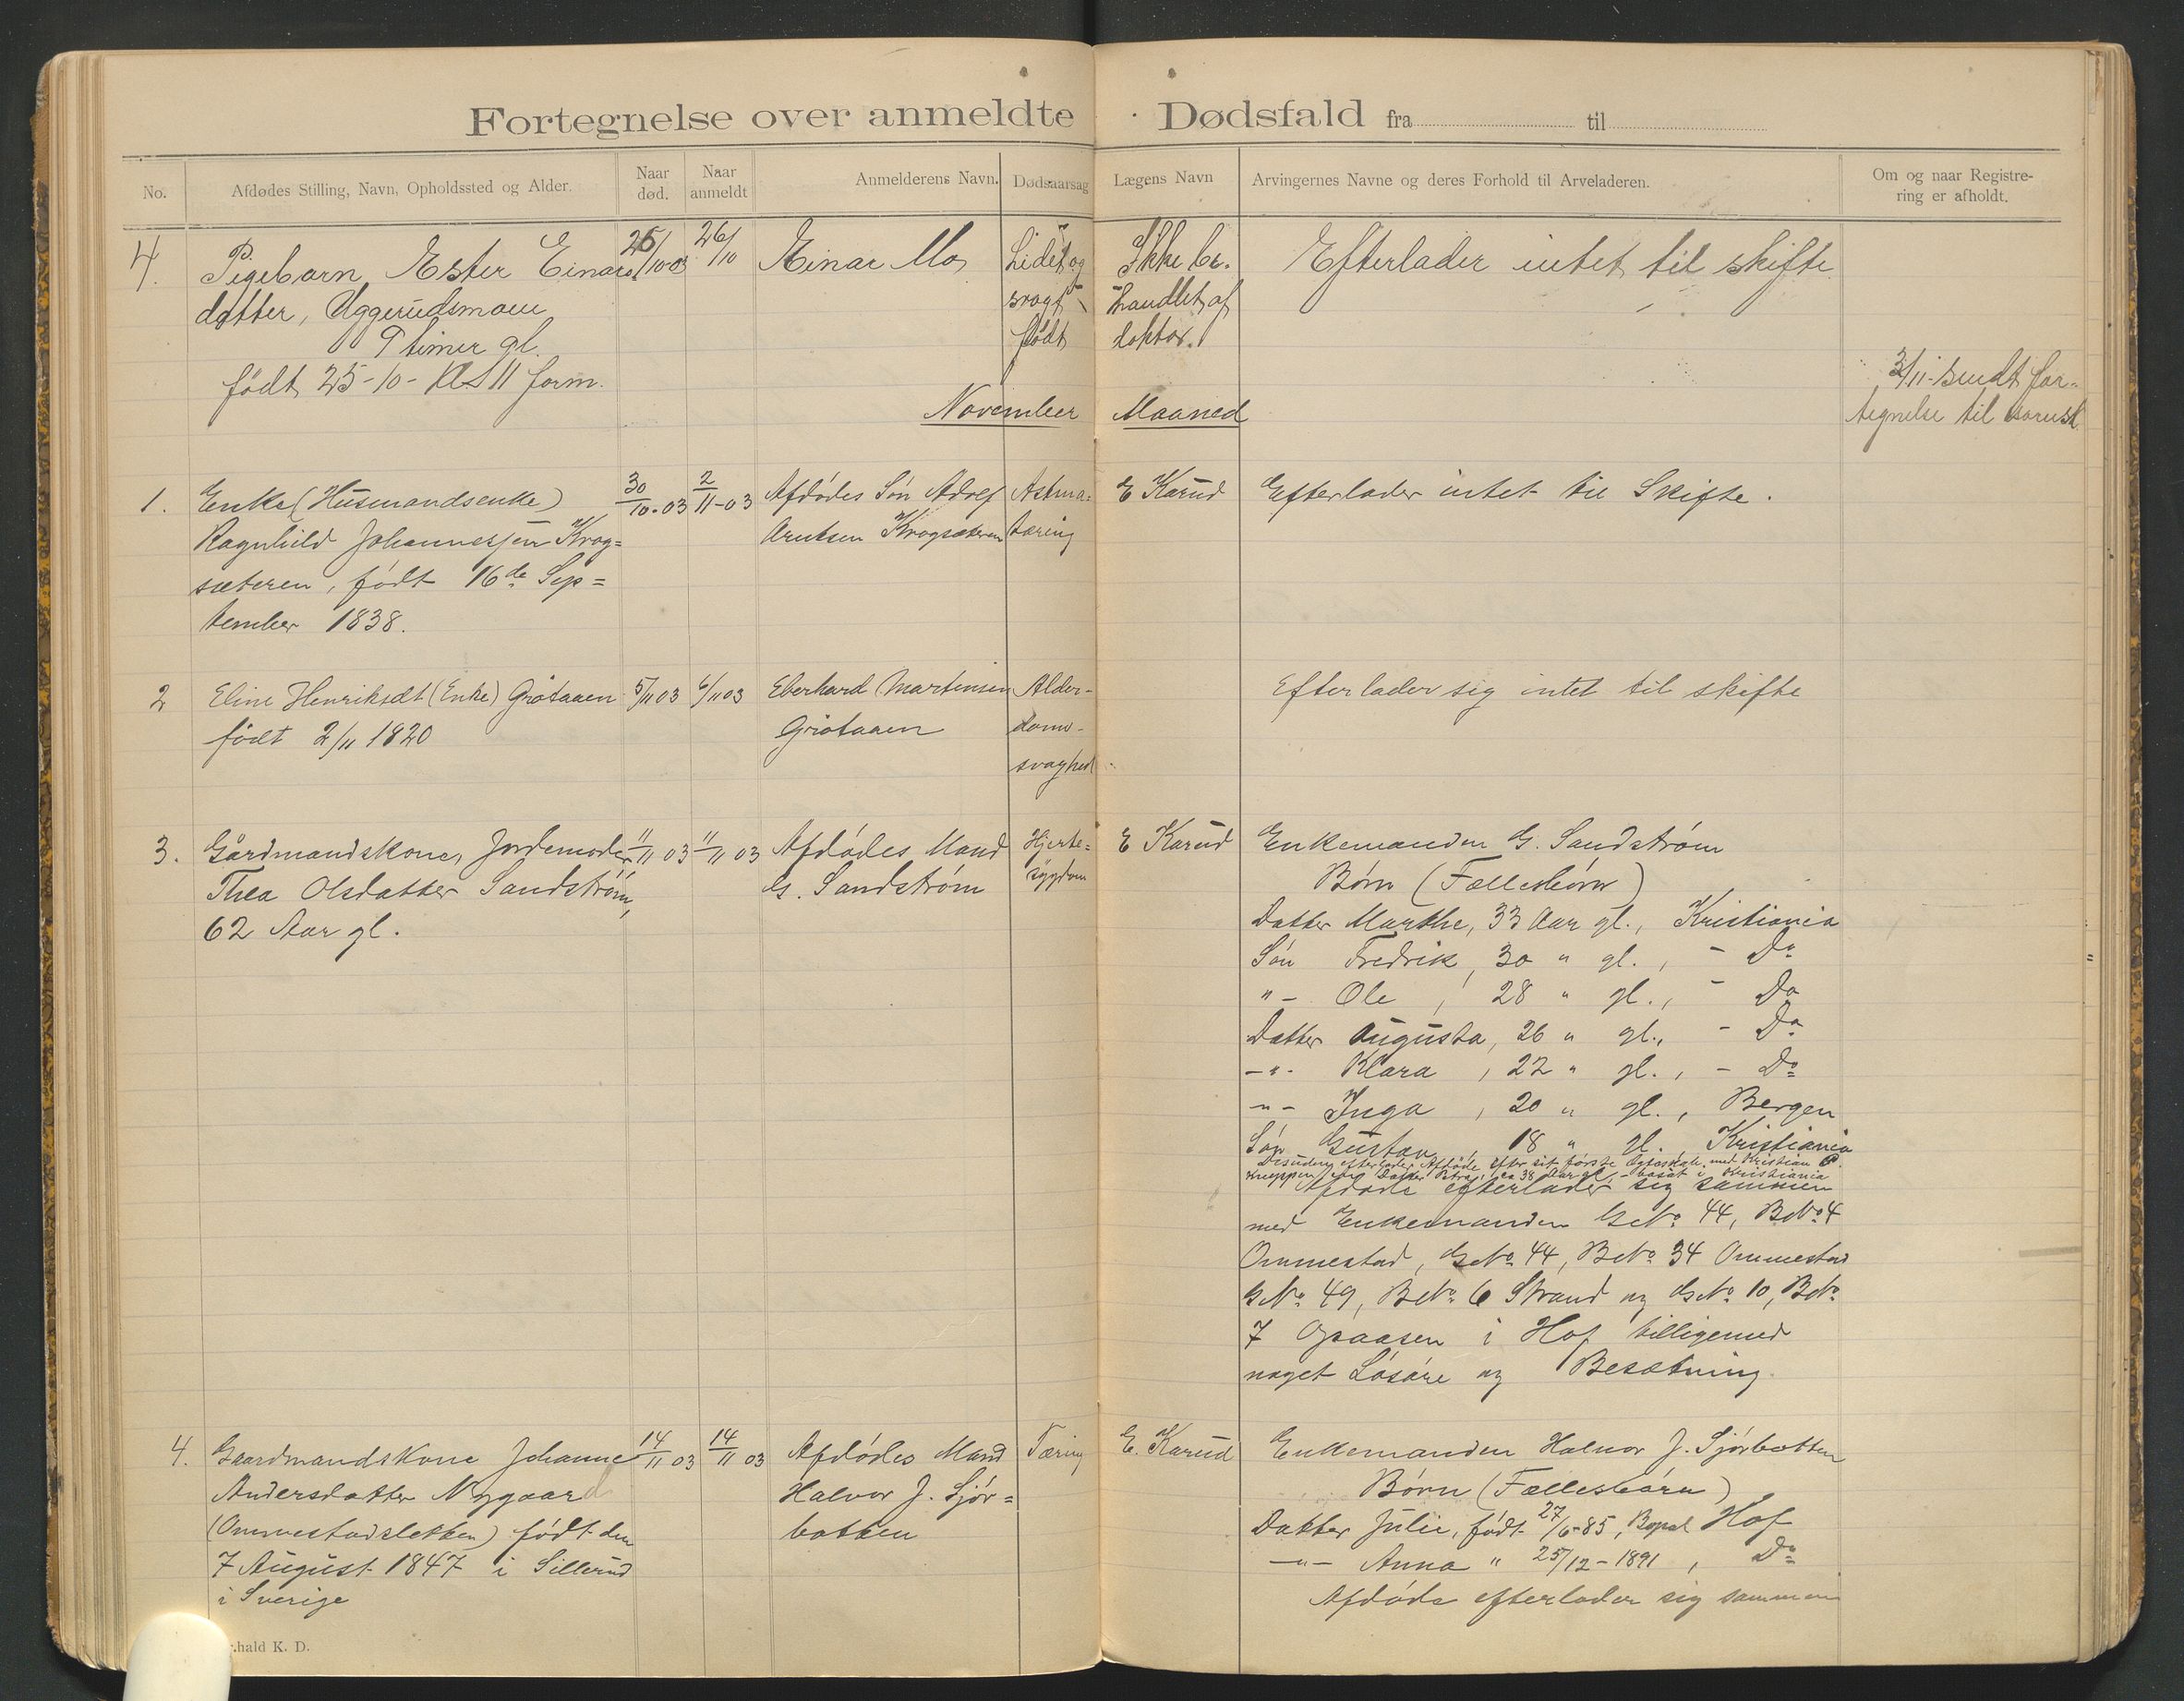 Fortegnelse over anmeldte Dødsfald fra til
No.
Afdødes Stilling, Navn, Opholdssted og Alder.
Naar død.
Naar anmeldt
Anmelderens Navn.
Dødsaarsag
Lægens Navn
Arvingernes Navne og deres Forhold til Arveladeren.
Om og naar Registre-
ring er afholdt.
4. Pigebarn Ester Einars
datter, Uggerudsmoen
9 timer gl.
født 25-10- Kl 11 form.
25/10 03
26/10
Einar Mo
Lidet og
svagt
født
Ikke be-
handlet af
doktor.
Efterlader intet til skifte
3/11 sendt for-
tegnelse til
November Maaned
1. Enke (Husmandsenke)
Ragnhild Johannesen Krog=
sæteren, født 16de Sep=
tember 1838.
30/10-03
2/11-03
Afdødes Søn Adolf
Arntsen Krogsæteren
Astma=
tæring
E Karud
Efterlader intet til Skifte.
2 Eline Henriksdt (Enke) Grötaaen
født 2/11 1820
5/11 03
6/11 03
Eberhard Martinsen
Grötaaen
Alder-
doms-
svaghed
Efterlader sig intet til skifte
3. Gårdmandskone, Jordemoder
Thea Olsdatter Sandström,
62 Aar gl.
11/11 03
11/11 03
Afdødes Mand
G. Sandström
Hjerte=
sygdom
E Karud
Enkemanden G. Sandstrøm
Børn (Fællesbørn)
Datter Marthe, 33 Aar gl., Kristiania
Søn Fredrik, 30 " gl., - Do
"- Ole, 28 " gl., - Do
Datter Augusta, 26 " gl., - Do
-"- Klara, 22 " gl., - Do
-"- Inga, 20 " gl., Bergen
Søn Gustav, 18 " gl., Kristiania
Desuden efterlader Afdøde efter sit første Ægteskab med Kristian P.
Knappen en Datter Petra, ca 38 Aar gl., - bosat i Kristiania
Afdøde efterlader sig sammen
med Enkemanden G.No. 44, B.No. 4
Ommestad, G.No. 44, B.No. 34 Ommestad
G.No. 49, B.No. 6 Strand og G.No. 10, B.No.
7 Opaasen i Hof tilligemed
noget Løsøre og Besætning.
4. Gaardmandskone Johanne
Andersdatter Nygaard
(Ommestadsletten) født den
7 August 1847 i Sillerud
i Sverige
14/11 03
14/11 03
Afdødes Mand
Halvor J. Sjør=
botten
Tæring
E. Karud
Enkemanden Halvor J. Sjørbotten
Børn (Fællesbørn)
Datter Julie, født 27/6-85, Bopæl Hof
-"- Anna " 25/12-1891, Do
Afdøde efterlader sig sammen
hald K. D.